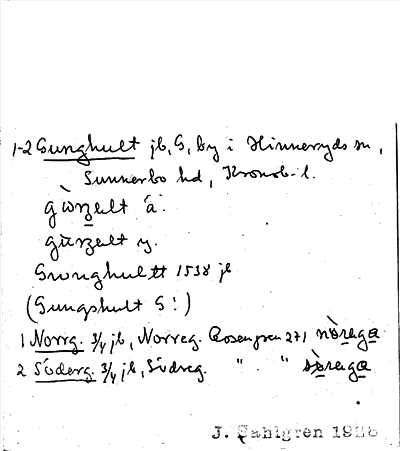 1-2 Gunghult jb, G, by i Hinneryds sn,
Sunnerbo hd, Kronob. l.
gùŋelt ä.
gùŋelt y.
Gwnghultt 1538 jb
(Gungshult G!)
1 Norrg. 3/4 jb, Norreg. Rosengren 271 nòrega
2 Söderg. 3/4 jb, Södreg. " " sòrega
J. Sahlgren 1928